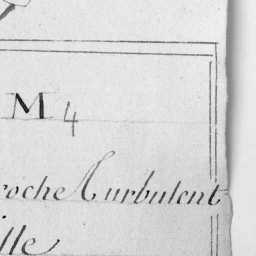 M 4
roche Turbulent
ille